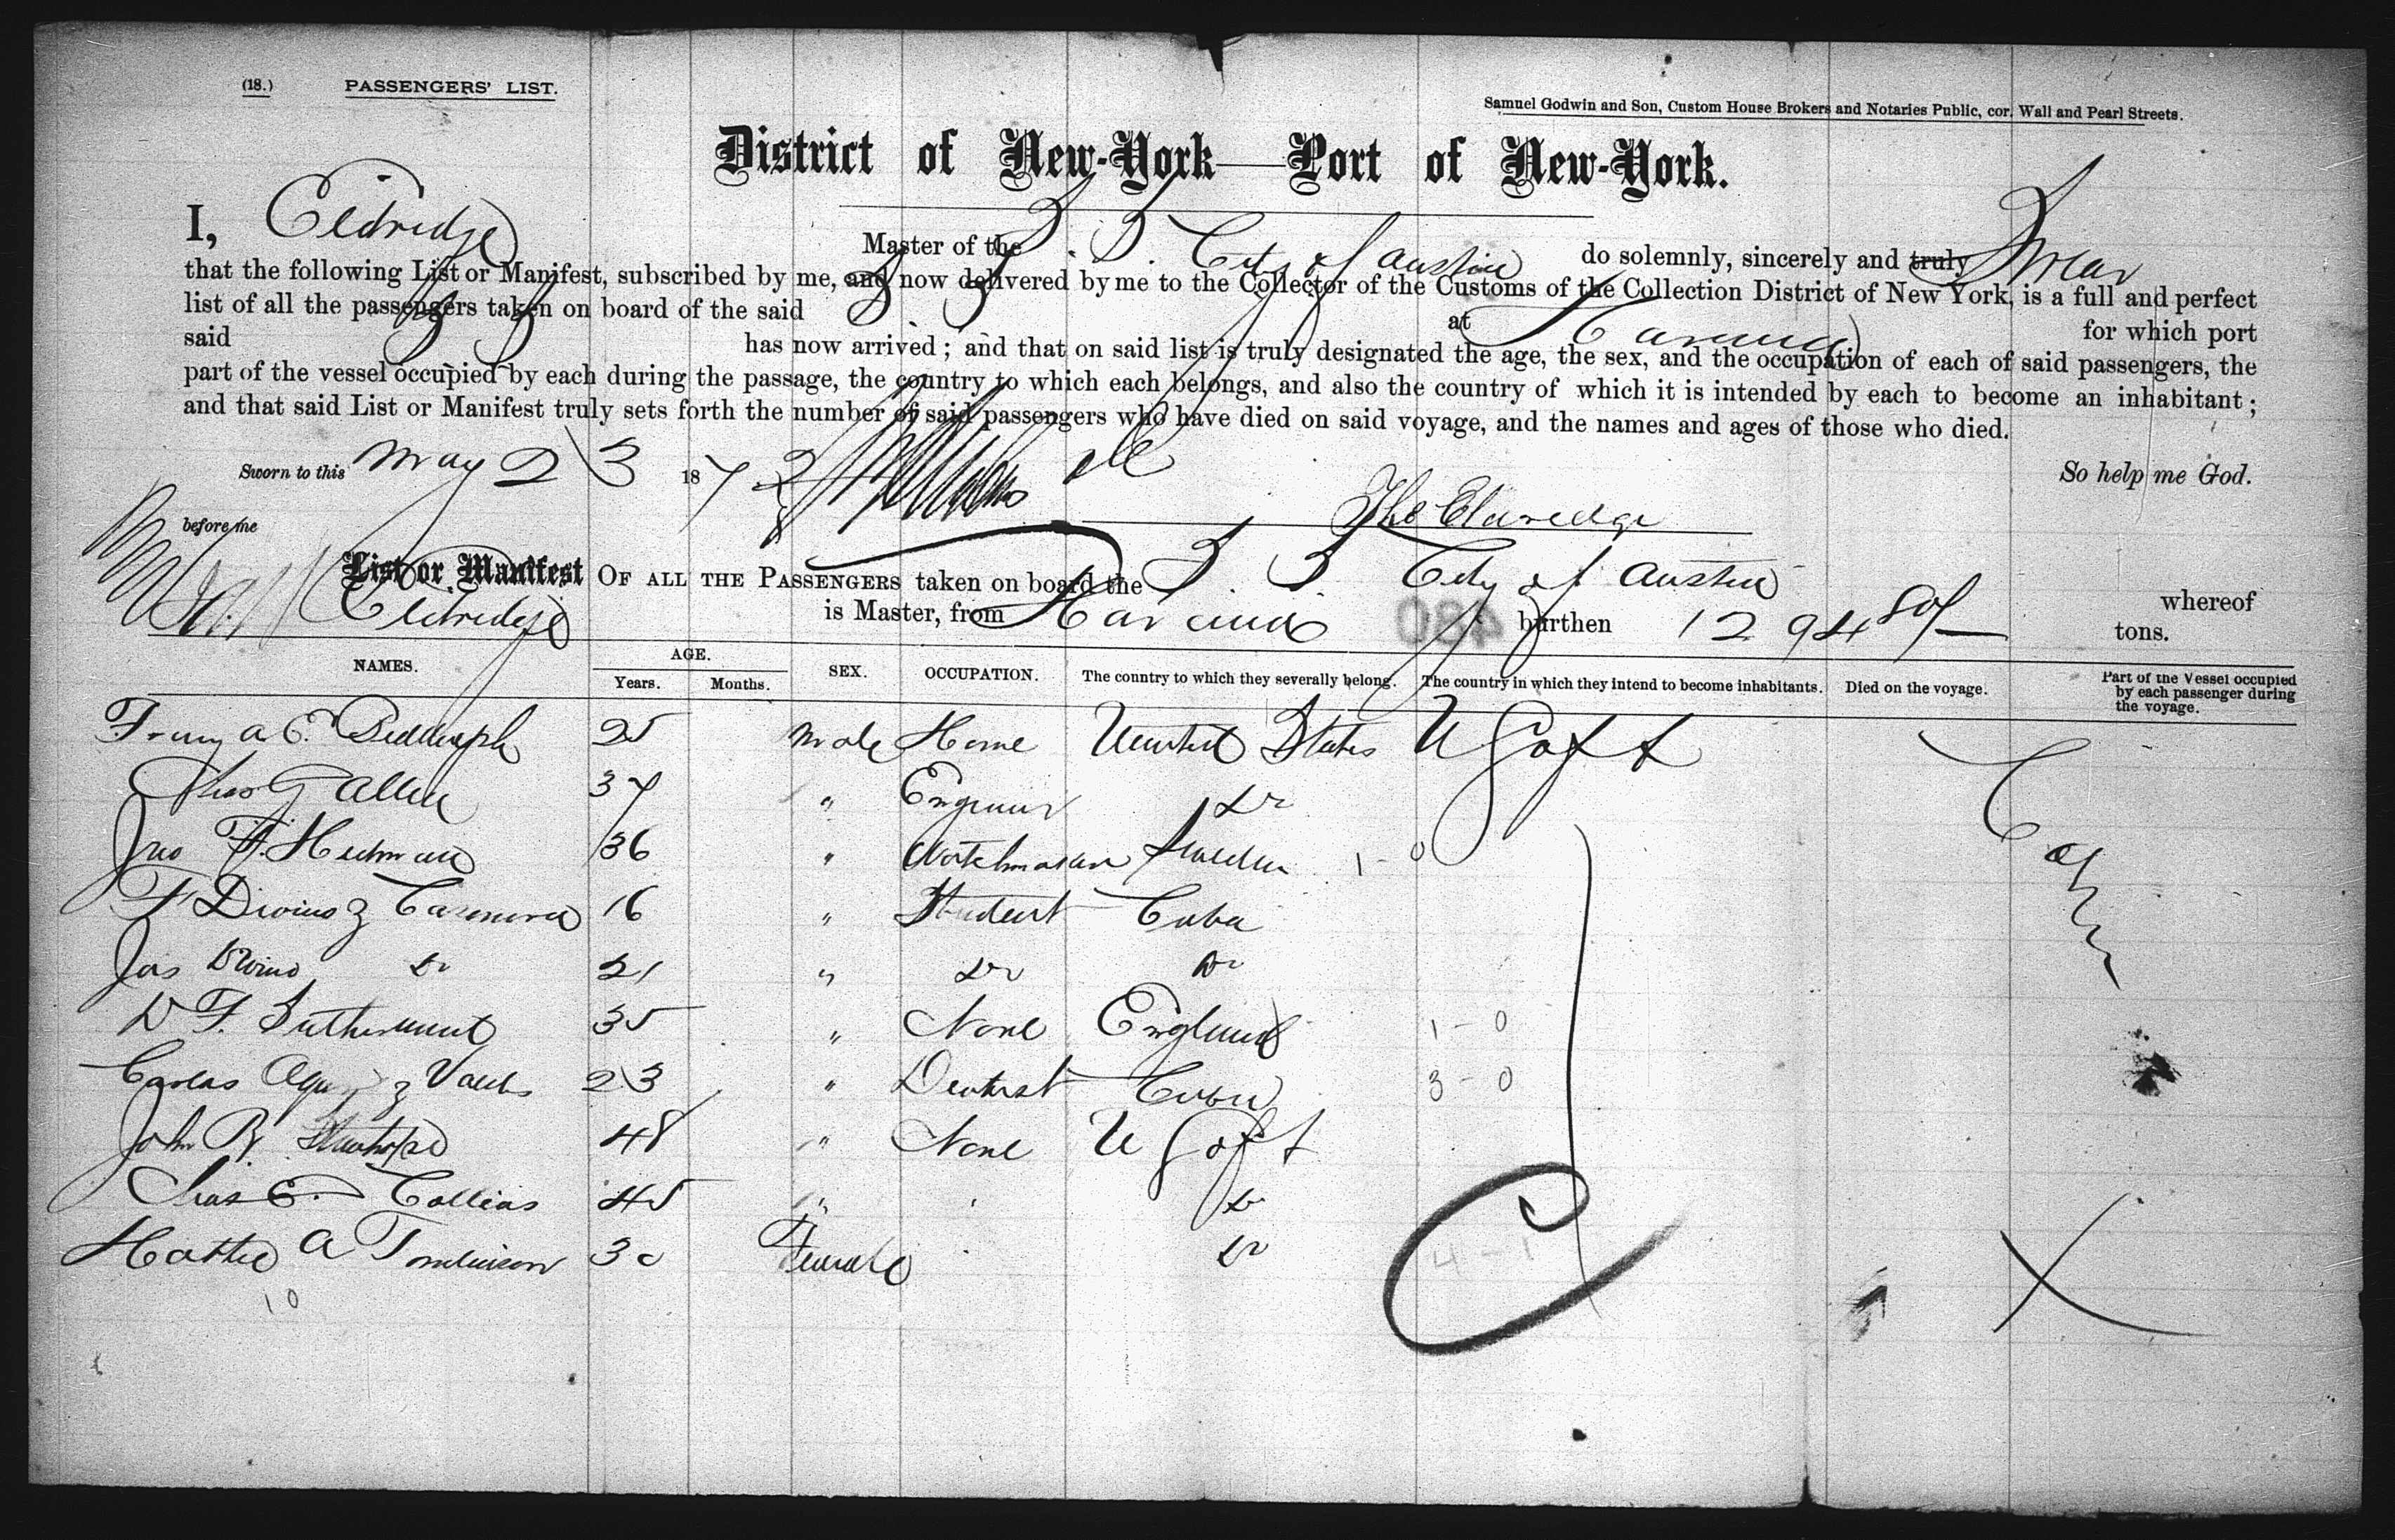 (18.) PASSENGERS' LIST.
Samuel Godwin and Son, Custom House Brokers and Notaries Public, cor. Wall and Pearl Streets.
District of New-York—Port of New-York.
I, Eldridge Master of the S. S. City of Austin do solemnly, sincerely and truly Swear
that the following List or Manifest, subscribed by me, and now delivered by me to the Collector of the Customs of the Collection District of New York, is a full and perfect
list of all the passengers taken on board of the said S S at Havana for which port
said S S has now arrived; and that on said list is truly designated the age, the sex, and the occupation of each of said passengers, the
part of the vessel occupied by each during the passage, the country to which each belongs, and also the country of which it is intended by each to become an inhabitant;
and that said List or Manifest truly sets forth the number of said passengers who have died on said voyage, and the names and ages of those who died.
Sworn to this May 23 187 So help me God.
before me Eldredge
List or Manifest OF ALL THE PASSENGERS taken on board the S S City of Austin whereof
Eldridge is Master, from Havana burthen 1294 80/ tons.
480
NAMES. AGE. SEX. OCCUPATION. The country to which they severally belong. The country in which they intend to become inhabitants. Died on the voyage. Part of the Vessel occupied by each passenger during the voyage.
Years. Months.
A E. 25 Male United States U S of A Cabin
Chas G Allen 37 " Engineer Do
Jno F. Hedman 36 " Watchmaker Sweden 1-0
F 16 " Student Cuba
Jas Do 21 " Do Do
D F. 35 " None England 1-0
Carlos y 23 " Dentist Cuba 3-0
John R. 48 " None U S of A
Chas E. Collins 45 " Do
Hattie A Tomlinson 30 Female Do 4-1
10